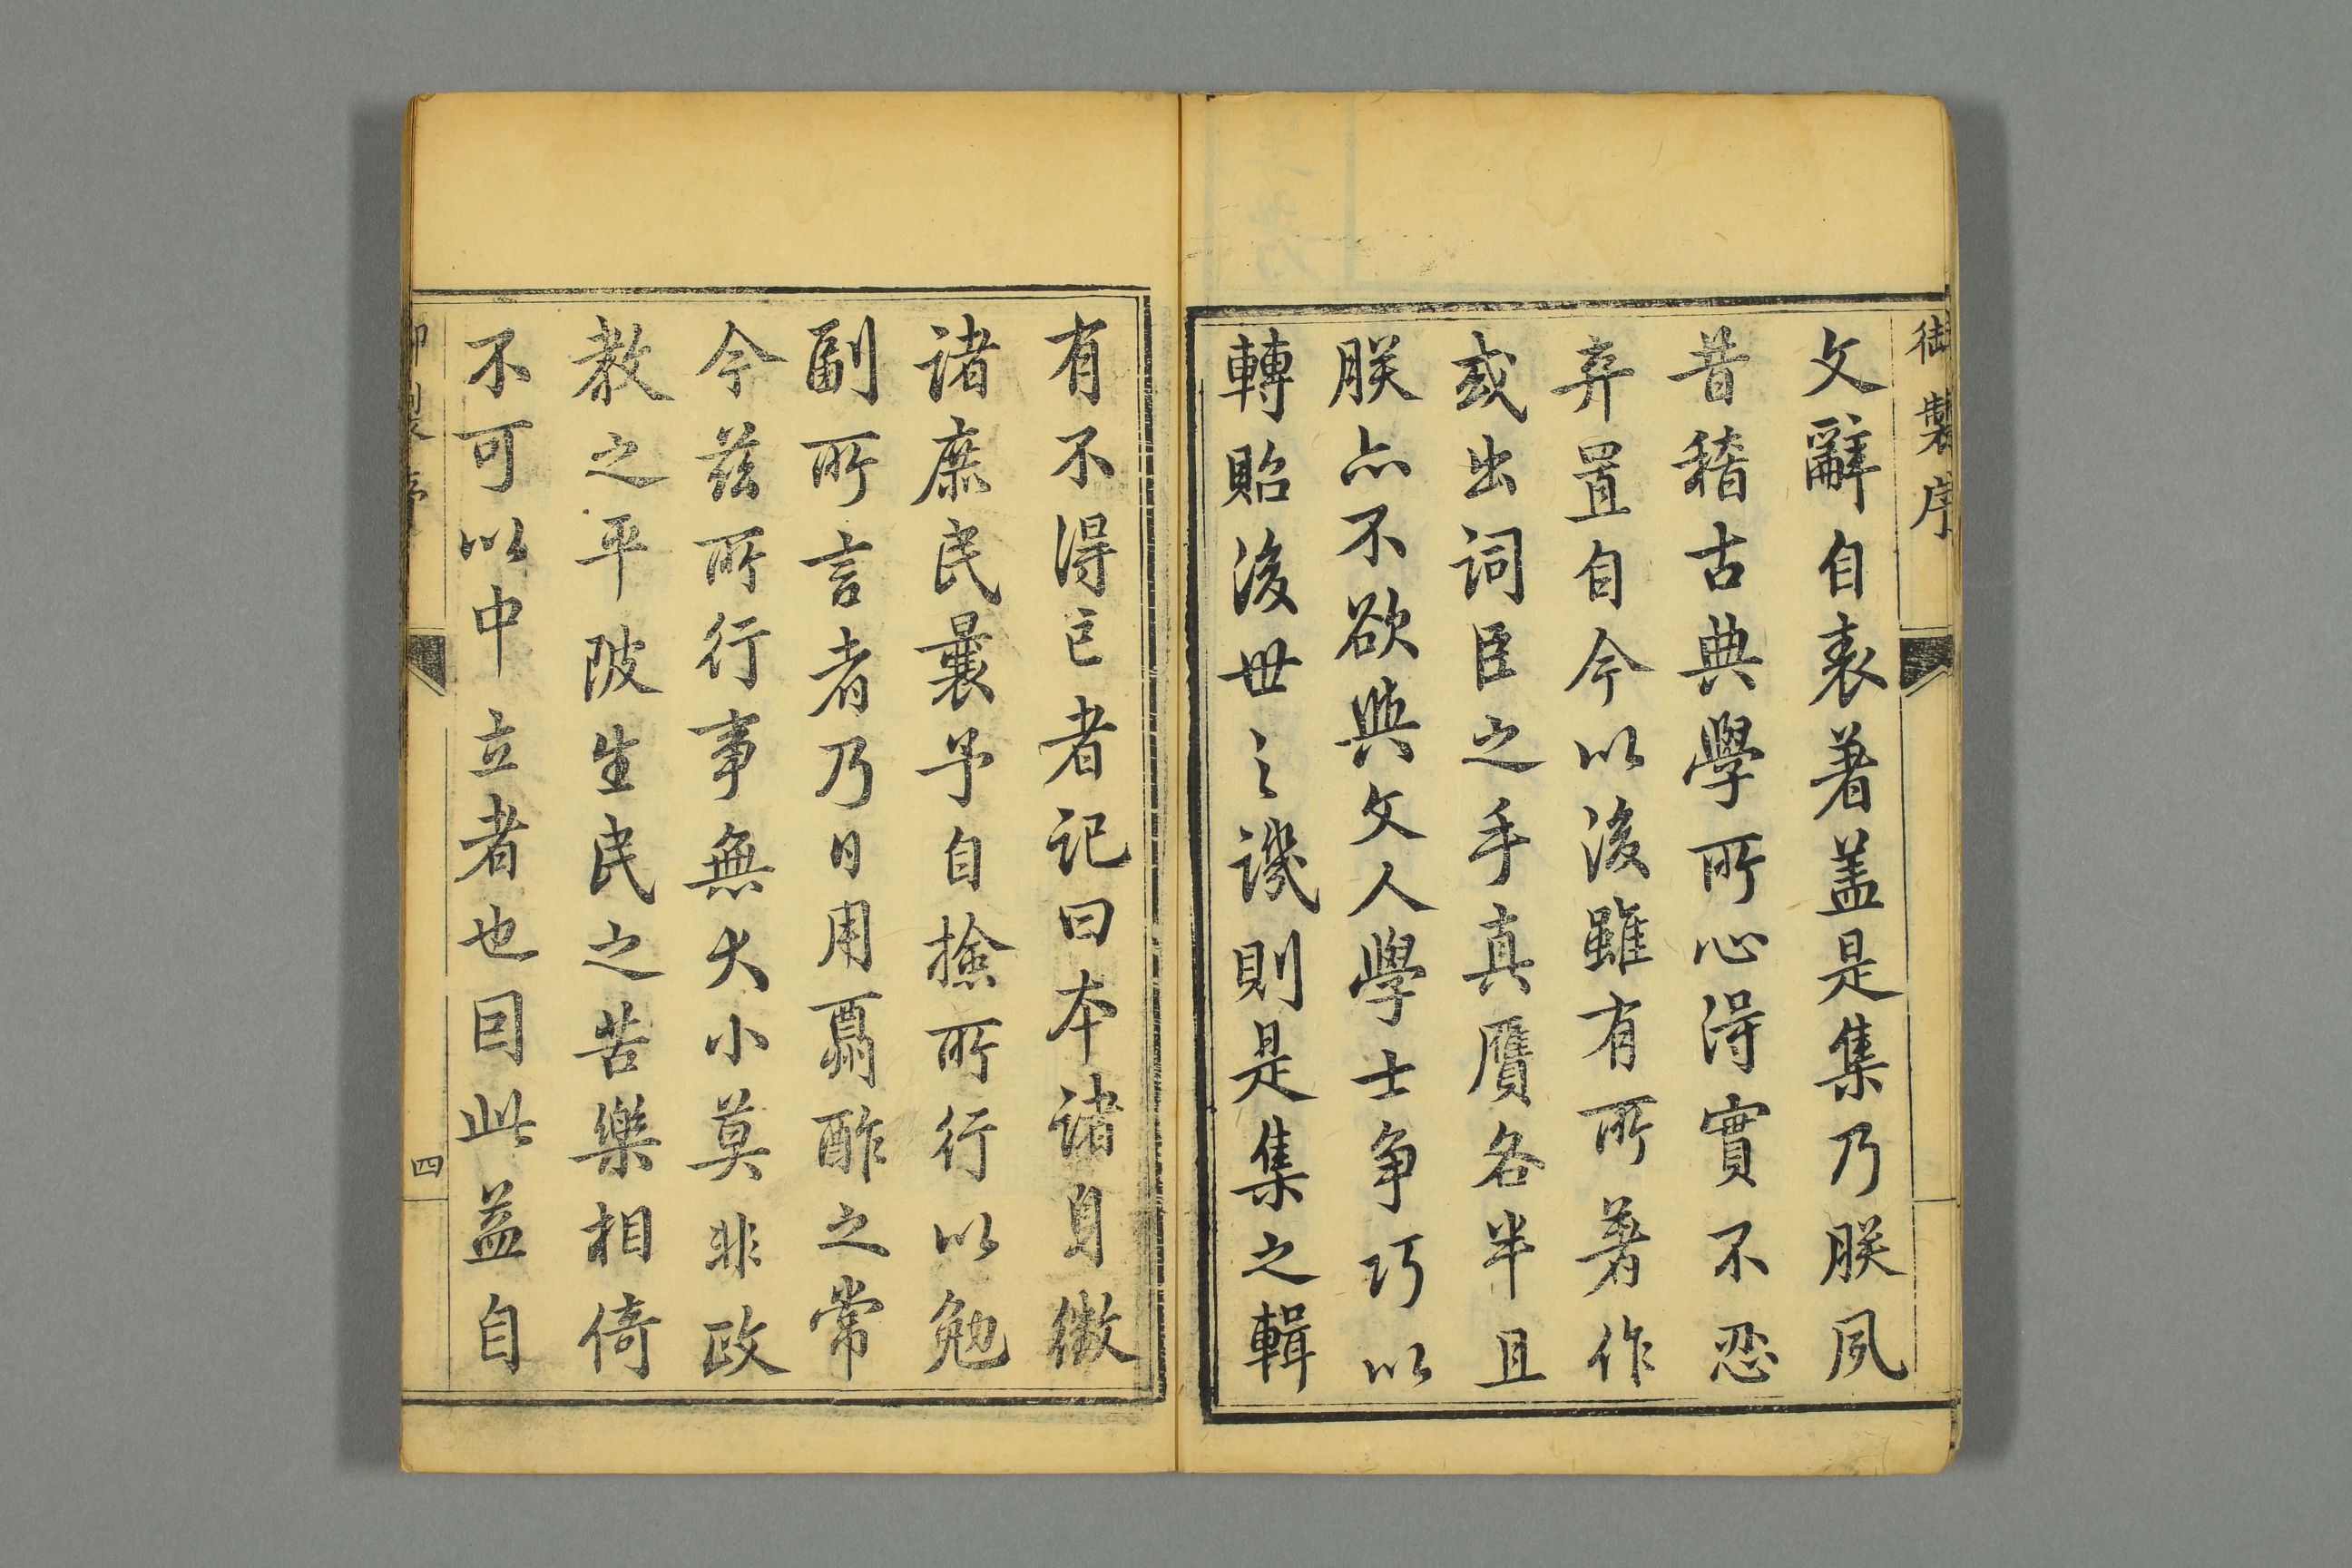 御製序
文辭自表著蓋是集乃朕夙
昔稽古典學所心得實不忍
弃置自今以後雖有所著作
或出詞臣之手真贋各半且
朕亦不欲與文人學士爭巧以
轉貽後世之譏則是集之輯
有不得已者記曰本諸身徵
諸庶民曩予自撿所行以勉
副所言者乃日用酬酢之常
今茲所行事無大小莫非政
教之平陂生民之苦樂相倚
不可以中立者也因此益自
御製序
四